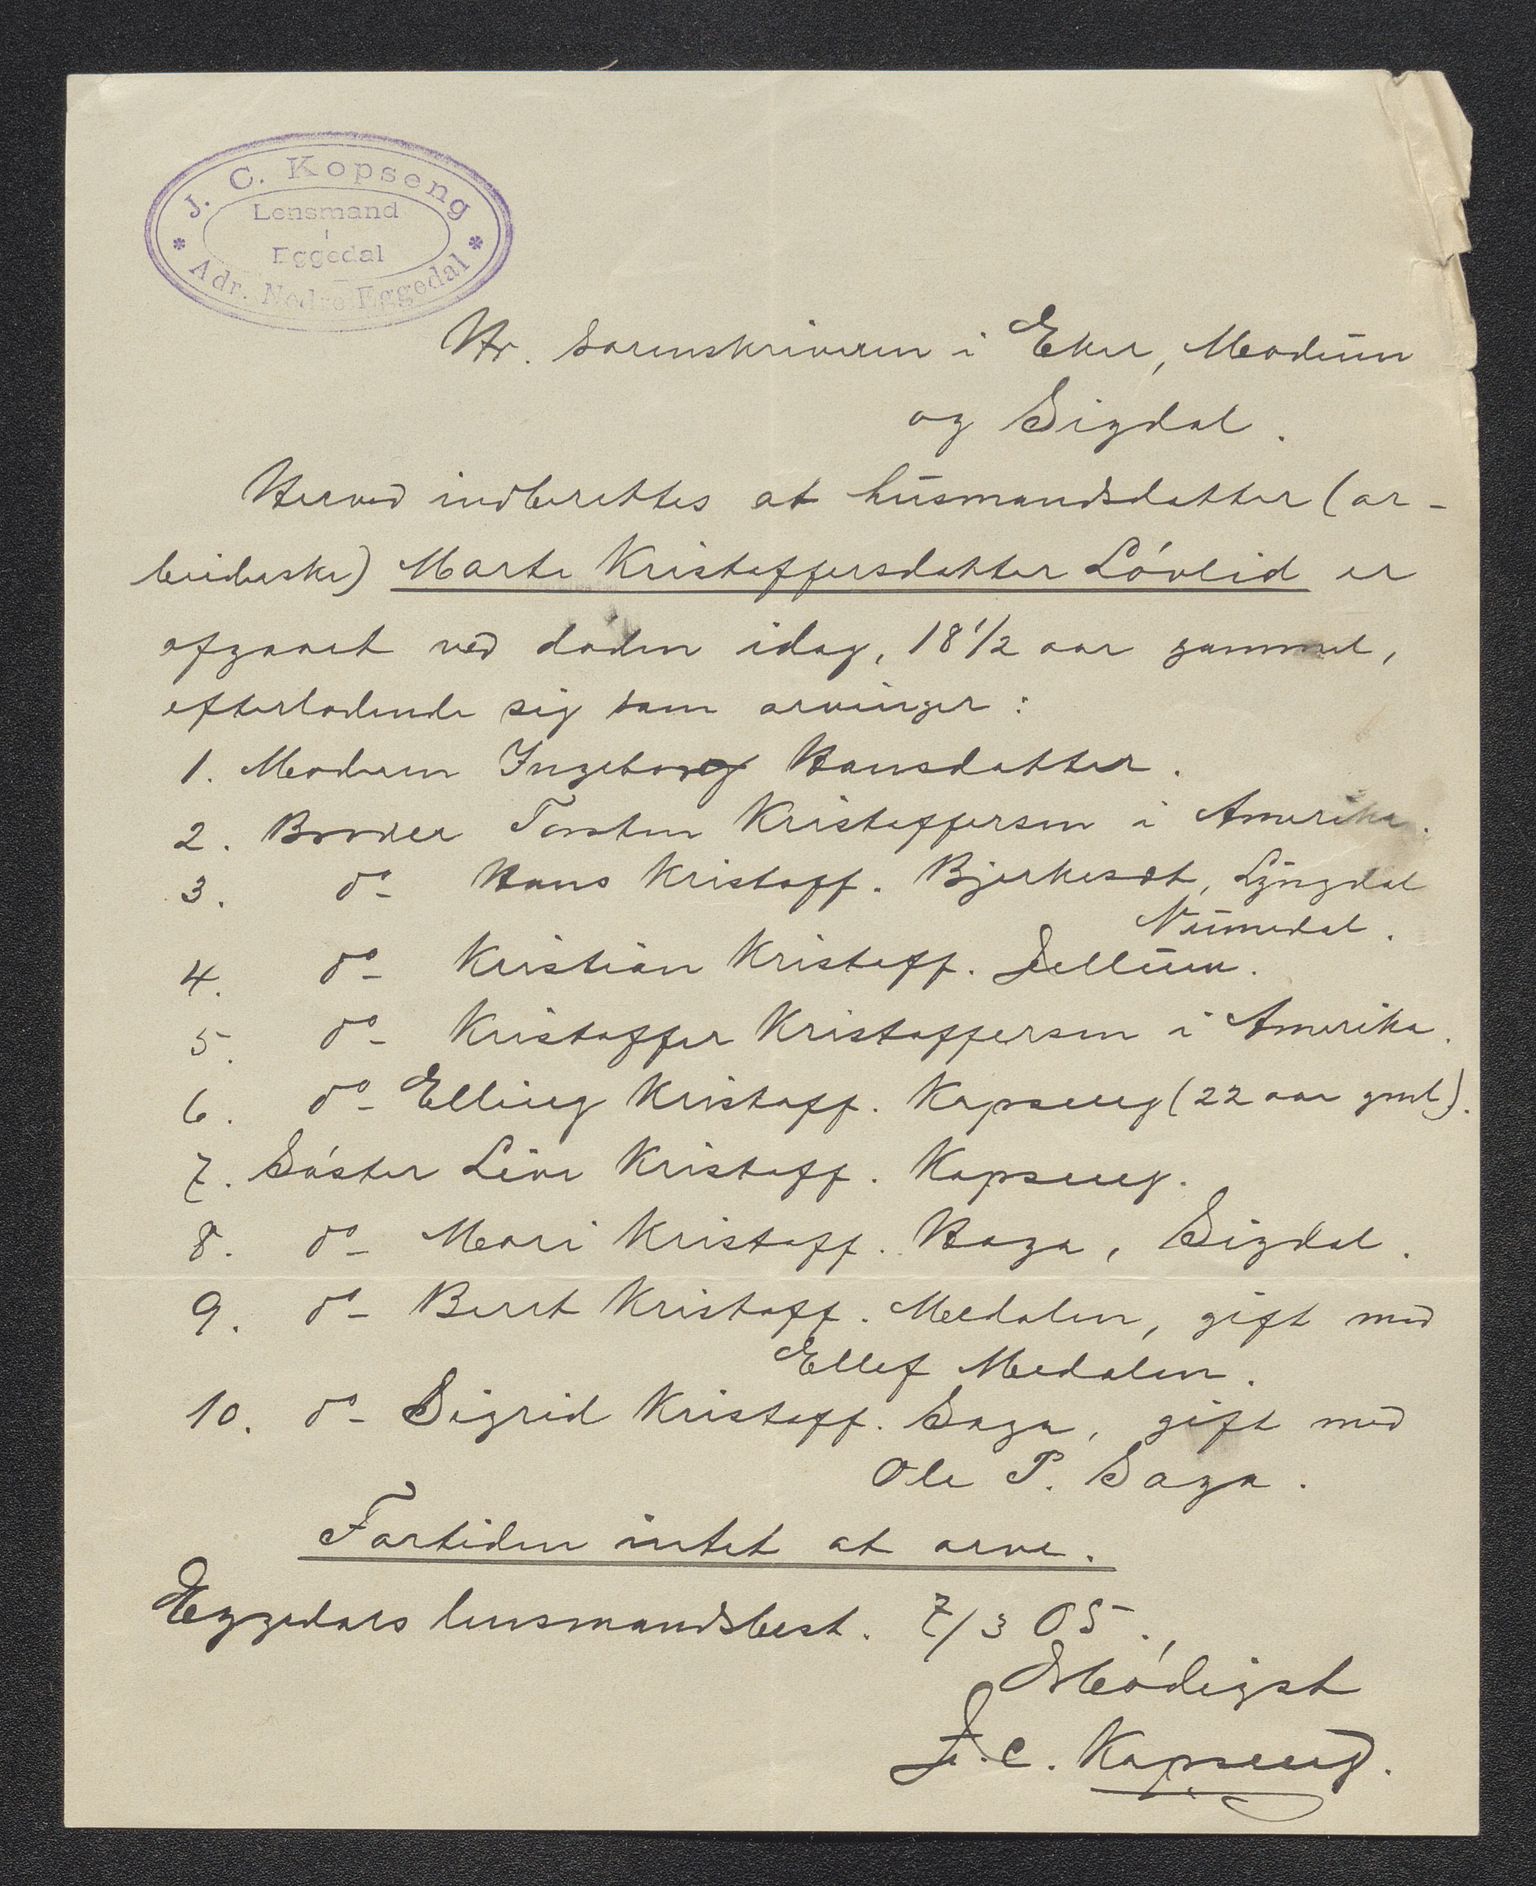 J. C. Kopseng
Lensmand
i
Eggedal
Adr. Nedre Eggedal
Hr. Sorenskriveren i Eker, Modum
og Sigdal.
Herved indberettes at husmandsdatter (ar-
beiderske) Marte Kristoffersdatter Lóvlid er
afgaaet ved døden idag, 18 1/2 aar gammel,
efterladende sig som arvinger:
1. Moderen Ingeborg Hansdatter.
2. Broder Torsten Kristoffersen i Amerika.
3. do - Hans Kristoff. Bjerkesæt, Lyngdal
Numedal.
4. do - Kristian Kristoff. Jellum.
5. do - Kristoffer Kristoffersen i Amerika.
6. do - Elling Kristoff. Kopseng (22 aar gml).
7. Sóster Live Kristoff. Kopseng.
8. do - Mari Kristoff. Haga, Sigdal.
9. do - Berit Kristoff. Medalen, gift med
Ellef Medalen.
10. do - Sigrid Kristoff. Saga, gift med
Ole P. Saga.
Fortiden intet at arve.
Eggedals lensmandsbest. 7/3 05.
Ærbódigst
J. C. Kopseng.